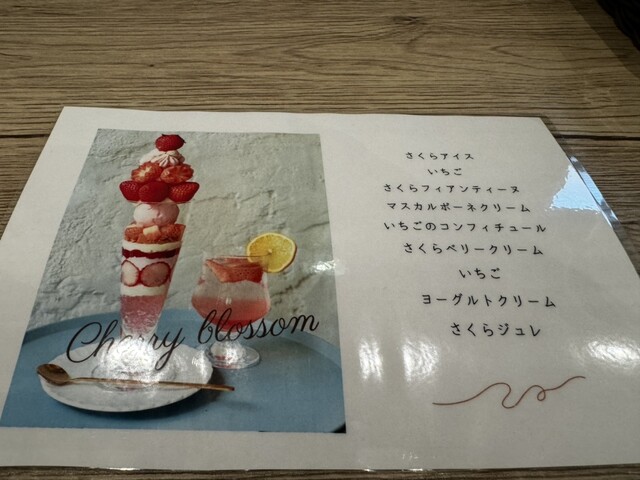 Cherry blossom
さくらアイス
いちご
さくらフィアンティーヌ
マスカルポーネクリーム
いちごのコンフィチュール
さくらベリークリーム
いちご
ヨーグルトクリーム
さくらジュレ